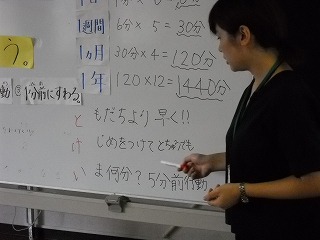 1週間 6分×5=30分
1ヵ月 30分×4=120分
1年 120×12=1440分
う。
動 ③ 1分前にすわる。
ともだちより 早く!!
けじめをつけて
いま何分? 5分前行動